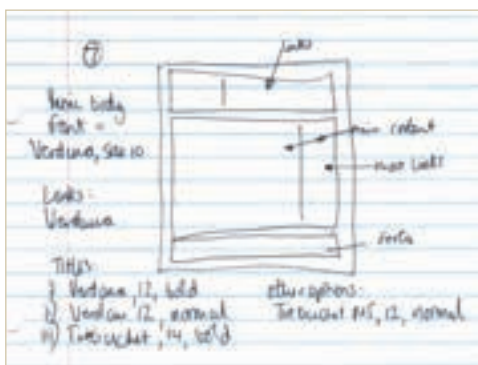 7
links
Main body
font =
Verdana, size 10
main content
main links
Links:
Verdana
footer
Titles
i) Verdana, 12, bold
ii) Verdana, 12, normal
iii) Trebuchet, 14, bold
other options:
Trebuchet MS, 12, normal